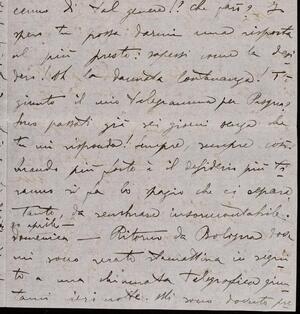 cenno di tal genere!? che farò? I
spero tu possa darmi una risposta
al più presto: sapessi come la desi
deri! Oh la dannata lontananza! Ti
giunto il mio telegramma per Pasqua,
sono passati già sei giorni senza che
tu mi risponda! sempre, sempre cotes
quando più forte è il desiderio più ti
ranno si fa lo spazio che ci separa
tanto, da sembrare insormontabile.
domenica — Ritorno da Bologna dove
mi sono recato stamattina in segui
to a una chiamata telegrafica giun
tami ieri notte. Mi sono dovuto pre